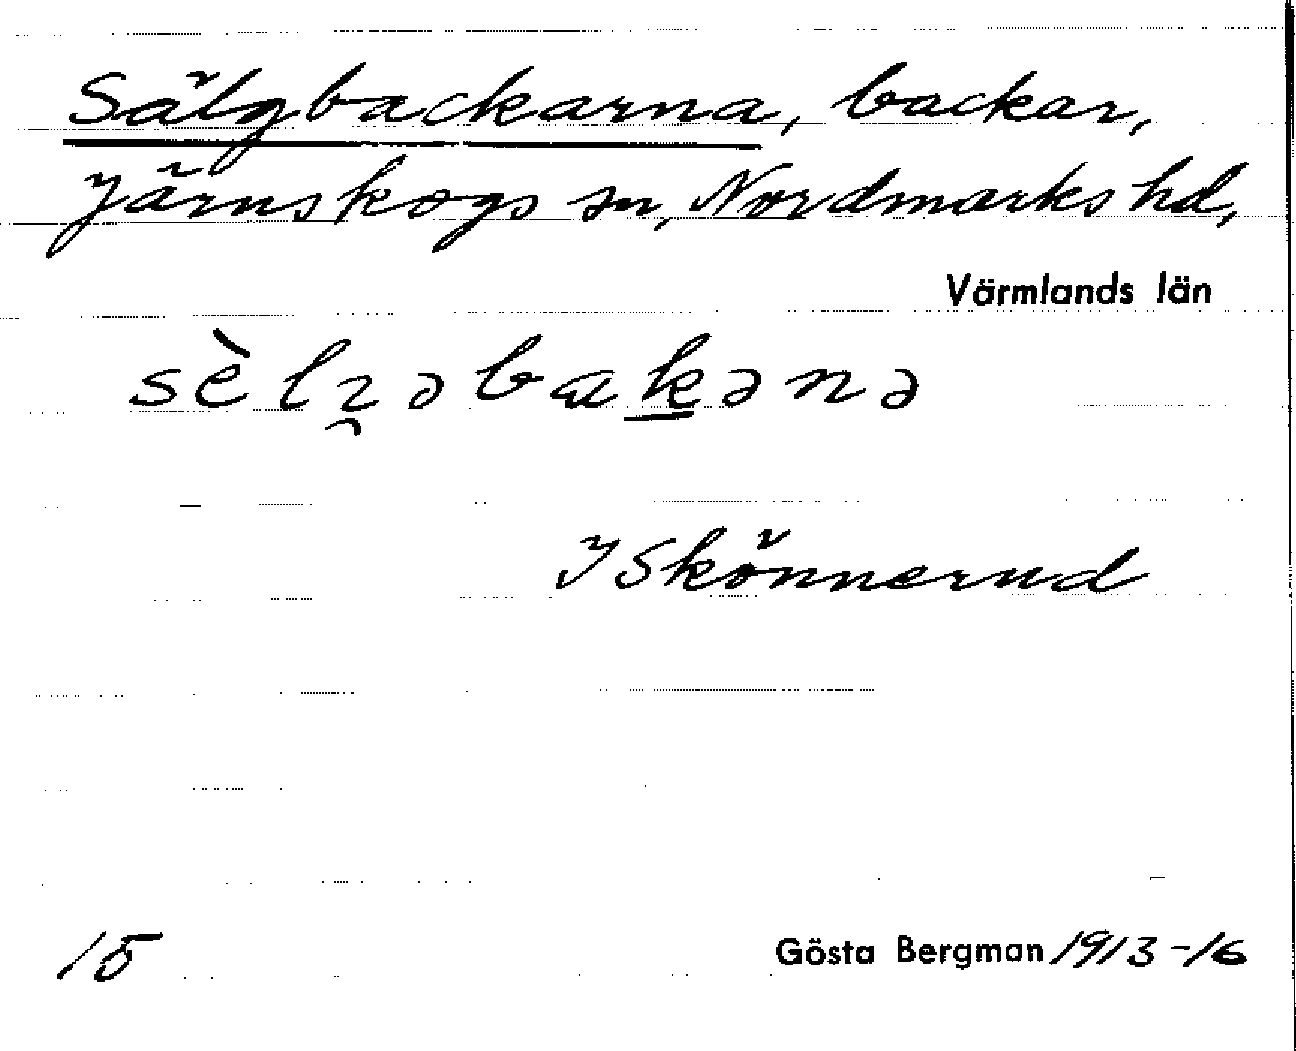 Sälgbackarna, backar,
Järnskogs sn, Nordmarks hd,
Värmlands län
sèlɀ̯əbakənə
I Skönnerud
15 Gösta Bergman 1913-16